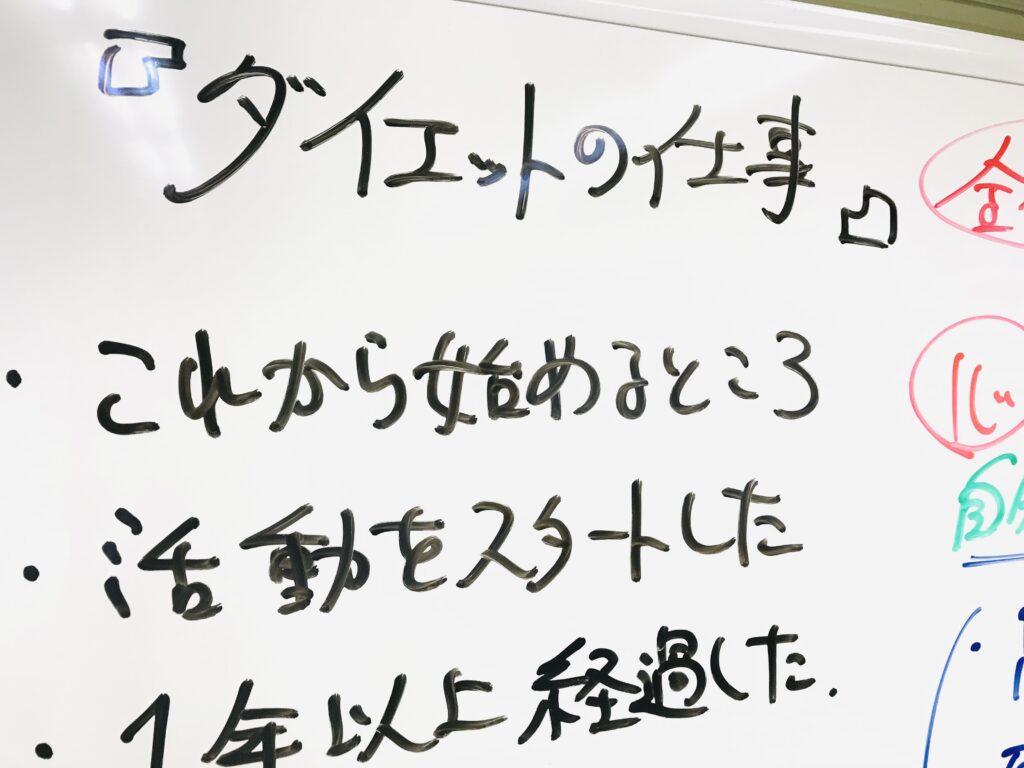 『ダイエットの仕事』
・これから始めるところ
・活動をスタートした
・1年以上経過した.